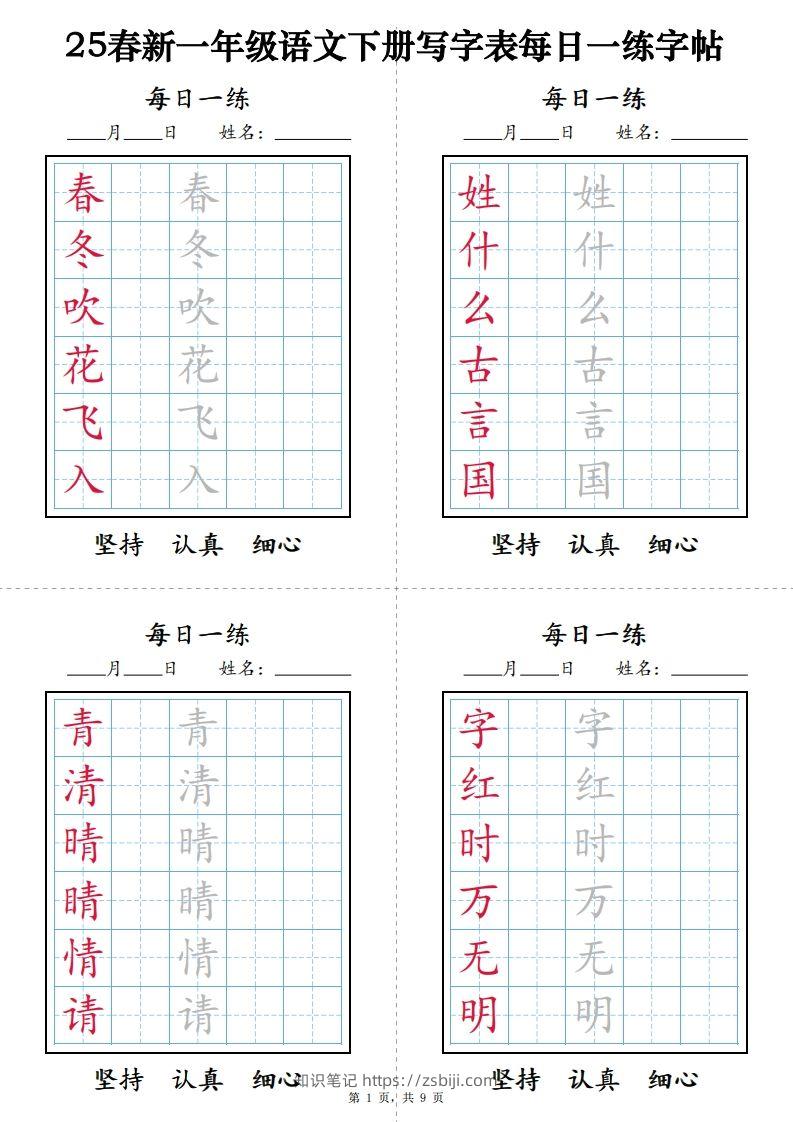 25春新一年级语文下册写字表每日一练字帖
每日一练
____月____日 姓名：________
春 春
冬 冬
吹 吹
花 花
飞 飞
入 入
坚持 认真 细心
每日一练
____月____日 姓名：________
姓 姓
什 什
么 么
古 古
言 言
国 国
坚持 认真 细心
每日一练
____月____日 姓名：________
青 青
清 清
晴 晴
睛 睛
情 情
请 请
坚持 认真 细心
每日一练
____月____日 姓名：________
字 字
红 红
时 时
万 万
无 无
明 明
坚持 认真 细心
知识笔记 https://zsbiji.com
第 1 页，共 9 页